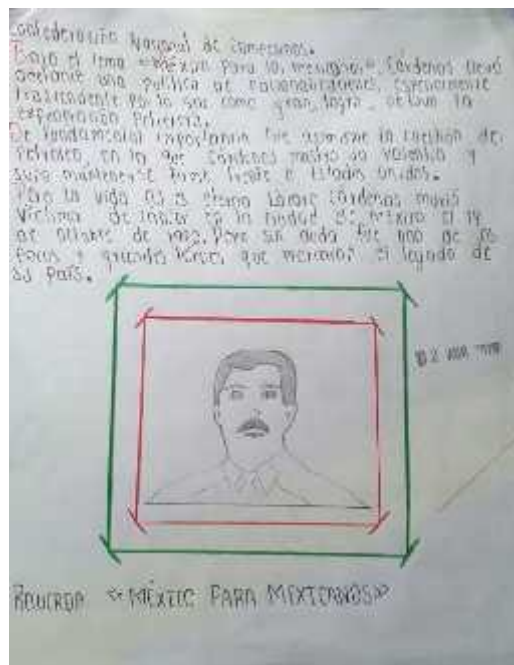 Confederación Nacional de Campesinos.
Bajo el lema "México para los mexicanos", Cárdenas llevó
adelante una política de nacionalizaciones, especialmente
trascendente por lo que como gran logro, obtuvo la
expropiación Petrolera.
De fundamental importancia fue asimismo la cuestión del
Petroleo, en la que Cárdenas mostró su valentía y
supo mantenerse firme frente a Estados Unidos.
Pero la vida no es eterna Lázaro Cárdenas murió
víctima de cáncer en la ciudad de México el 19
de octubre de 1970. Pero sin duda fue uno de los
pocos y grandes líderes que merecen el legado de
su País.
02
RECUERDA «MÉXICO PARA MEXICANOS»